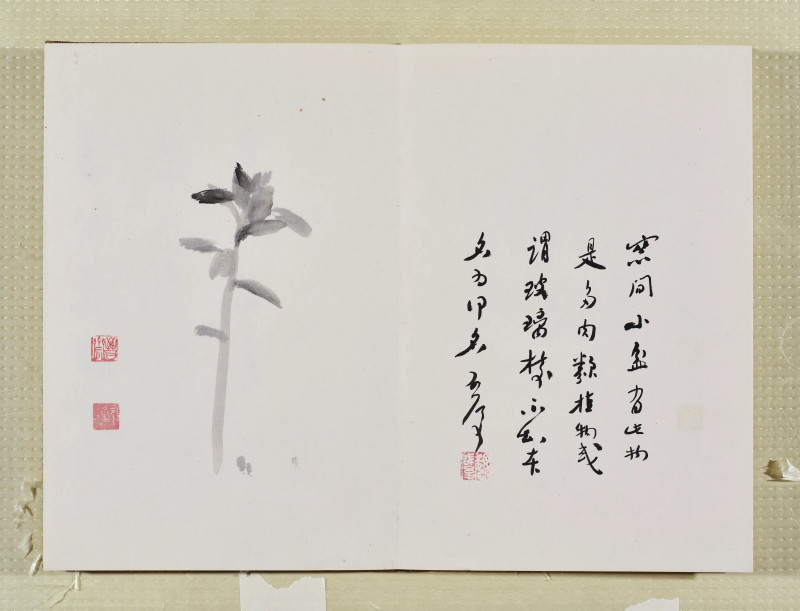 窗间小盆有此物
是多肉类植物或
谓玻璃树不知本
名为何名